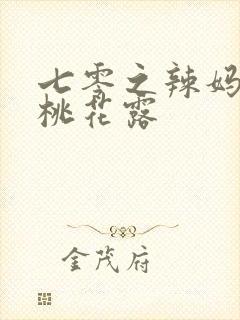 七零之辣妈
桃花露
金茂府